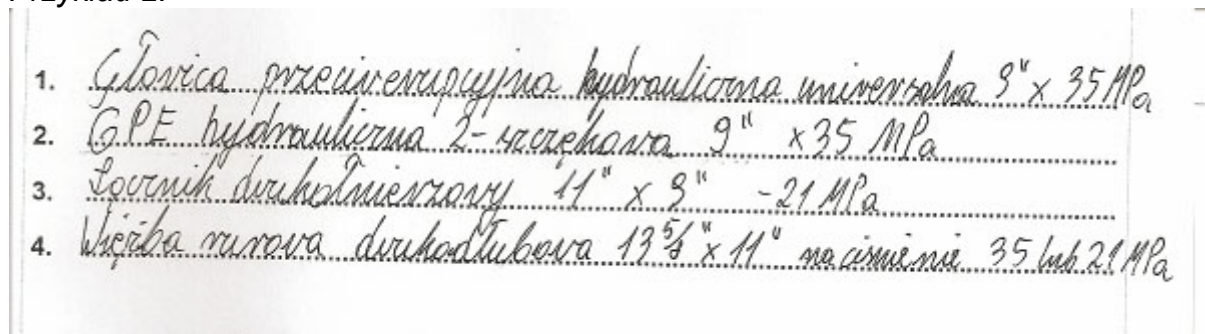 Przykład 2.
1. Głowica przeciwerupcyjna hydrauliczna uniwersalna 9" x 35 MPa
2. GPE hydrauliczna 2-szczękowa 9" x 35 MPa
3. Łącznik dwukołnierzowy 11" x 9" - 21 MPa
4. Więźba rurowa dwukadłubowa 13 5/8" x 11" na ciśnienie 35 lub 21 MPa